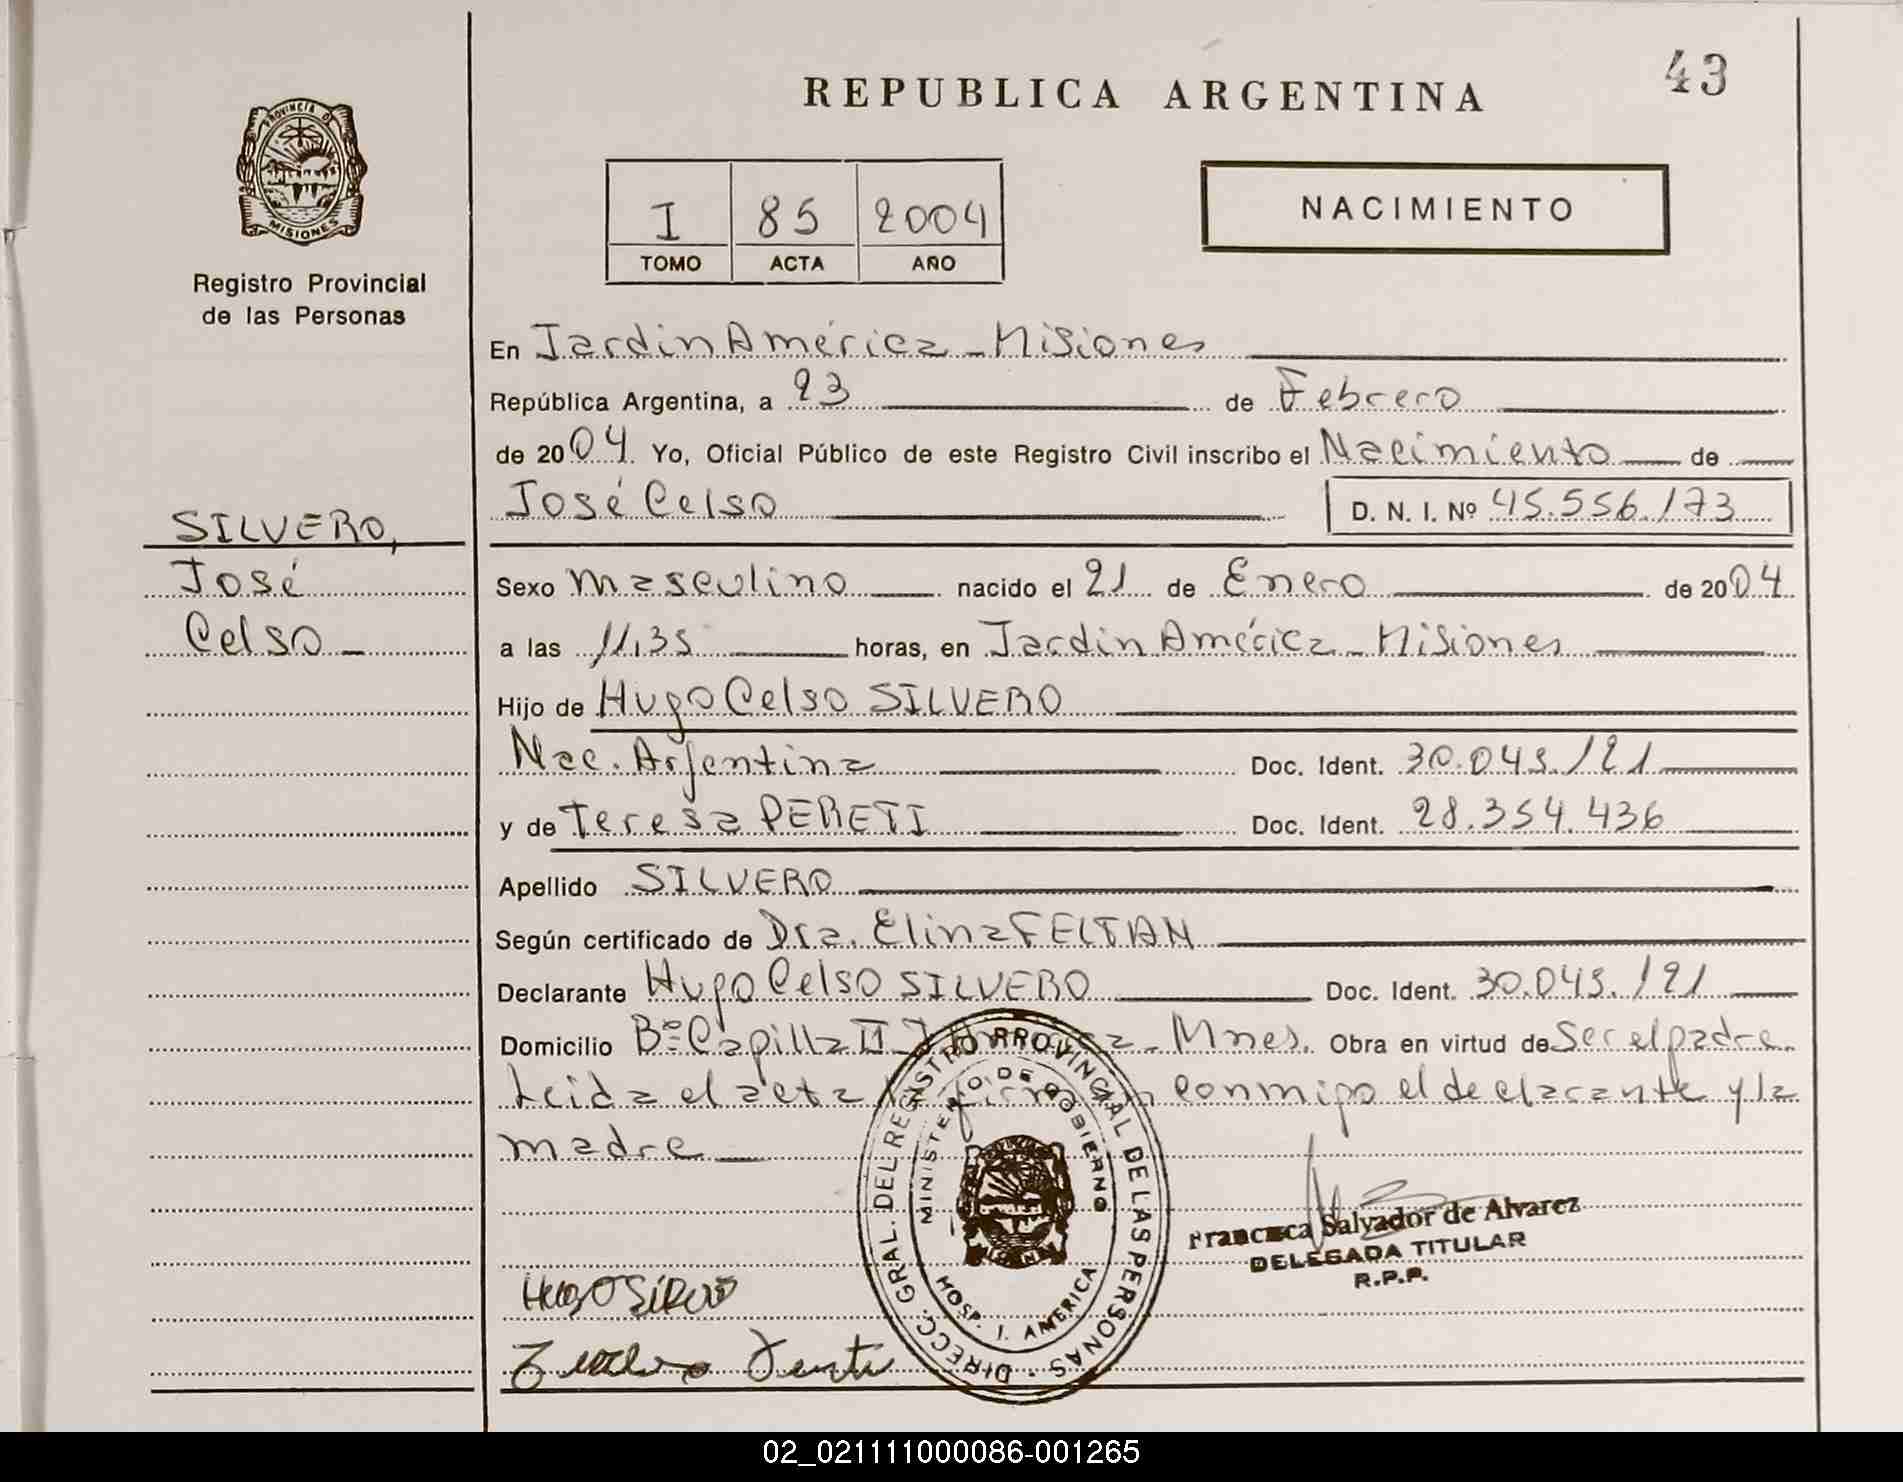 43
REPUBLICA ARGENTINA
PROVINCIA D
MISIONES
Registro Provincial
de las Personas
I 85 2004
TOMO ACTA AÑO
NACIMIENTO
En Jardin América - Misiones
República Argentina, a 23 de Febrero
de 2004 Yo, Oficial Público de este Registro Civil inscribo el Nacimiento de
José Celso D. N. I. Nº 45.556.173
SILVERO,
José
Celso
Sexo masculino nacido el 21 de Enero de 2004
a las 11,35 horas, en Jardin América - Misiones
Hijo de Hugo Celso SILVERO
Nac. Argentina Doc. Ident. 30.043.121
y de Teresa PERETI Doc. Ident. 28.354.436
Apellido SILVERO
Según certificado de Dra. Elina FELTAN
Declarante Hugo Celso SILVERO Doc. Ident. 30.043.121
Domicilio Bº Capilla II J. América - Mnes. Obra en virtud de Ser el padre.
Leida el acta firman conmigo el declarante y la
madre
DIRECC. GRAL. DEL REGISTRO PROVINCIAL DE LAS PERSONAS
MINISTERIO DE GOBIERNO
HOSP. J. AMERICA
Francisca Salvador de Alvarez
DELEGADA TITULAR
R.P.P.
02_021111000086-001265